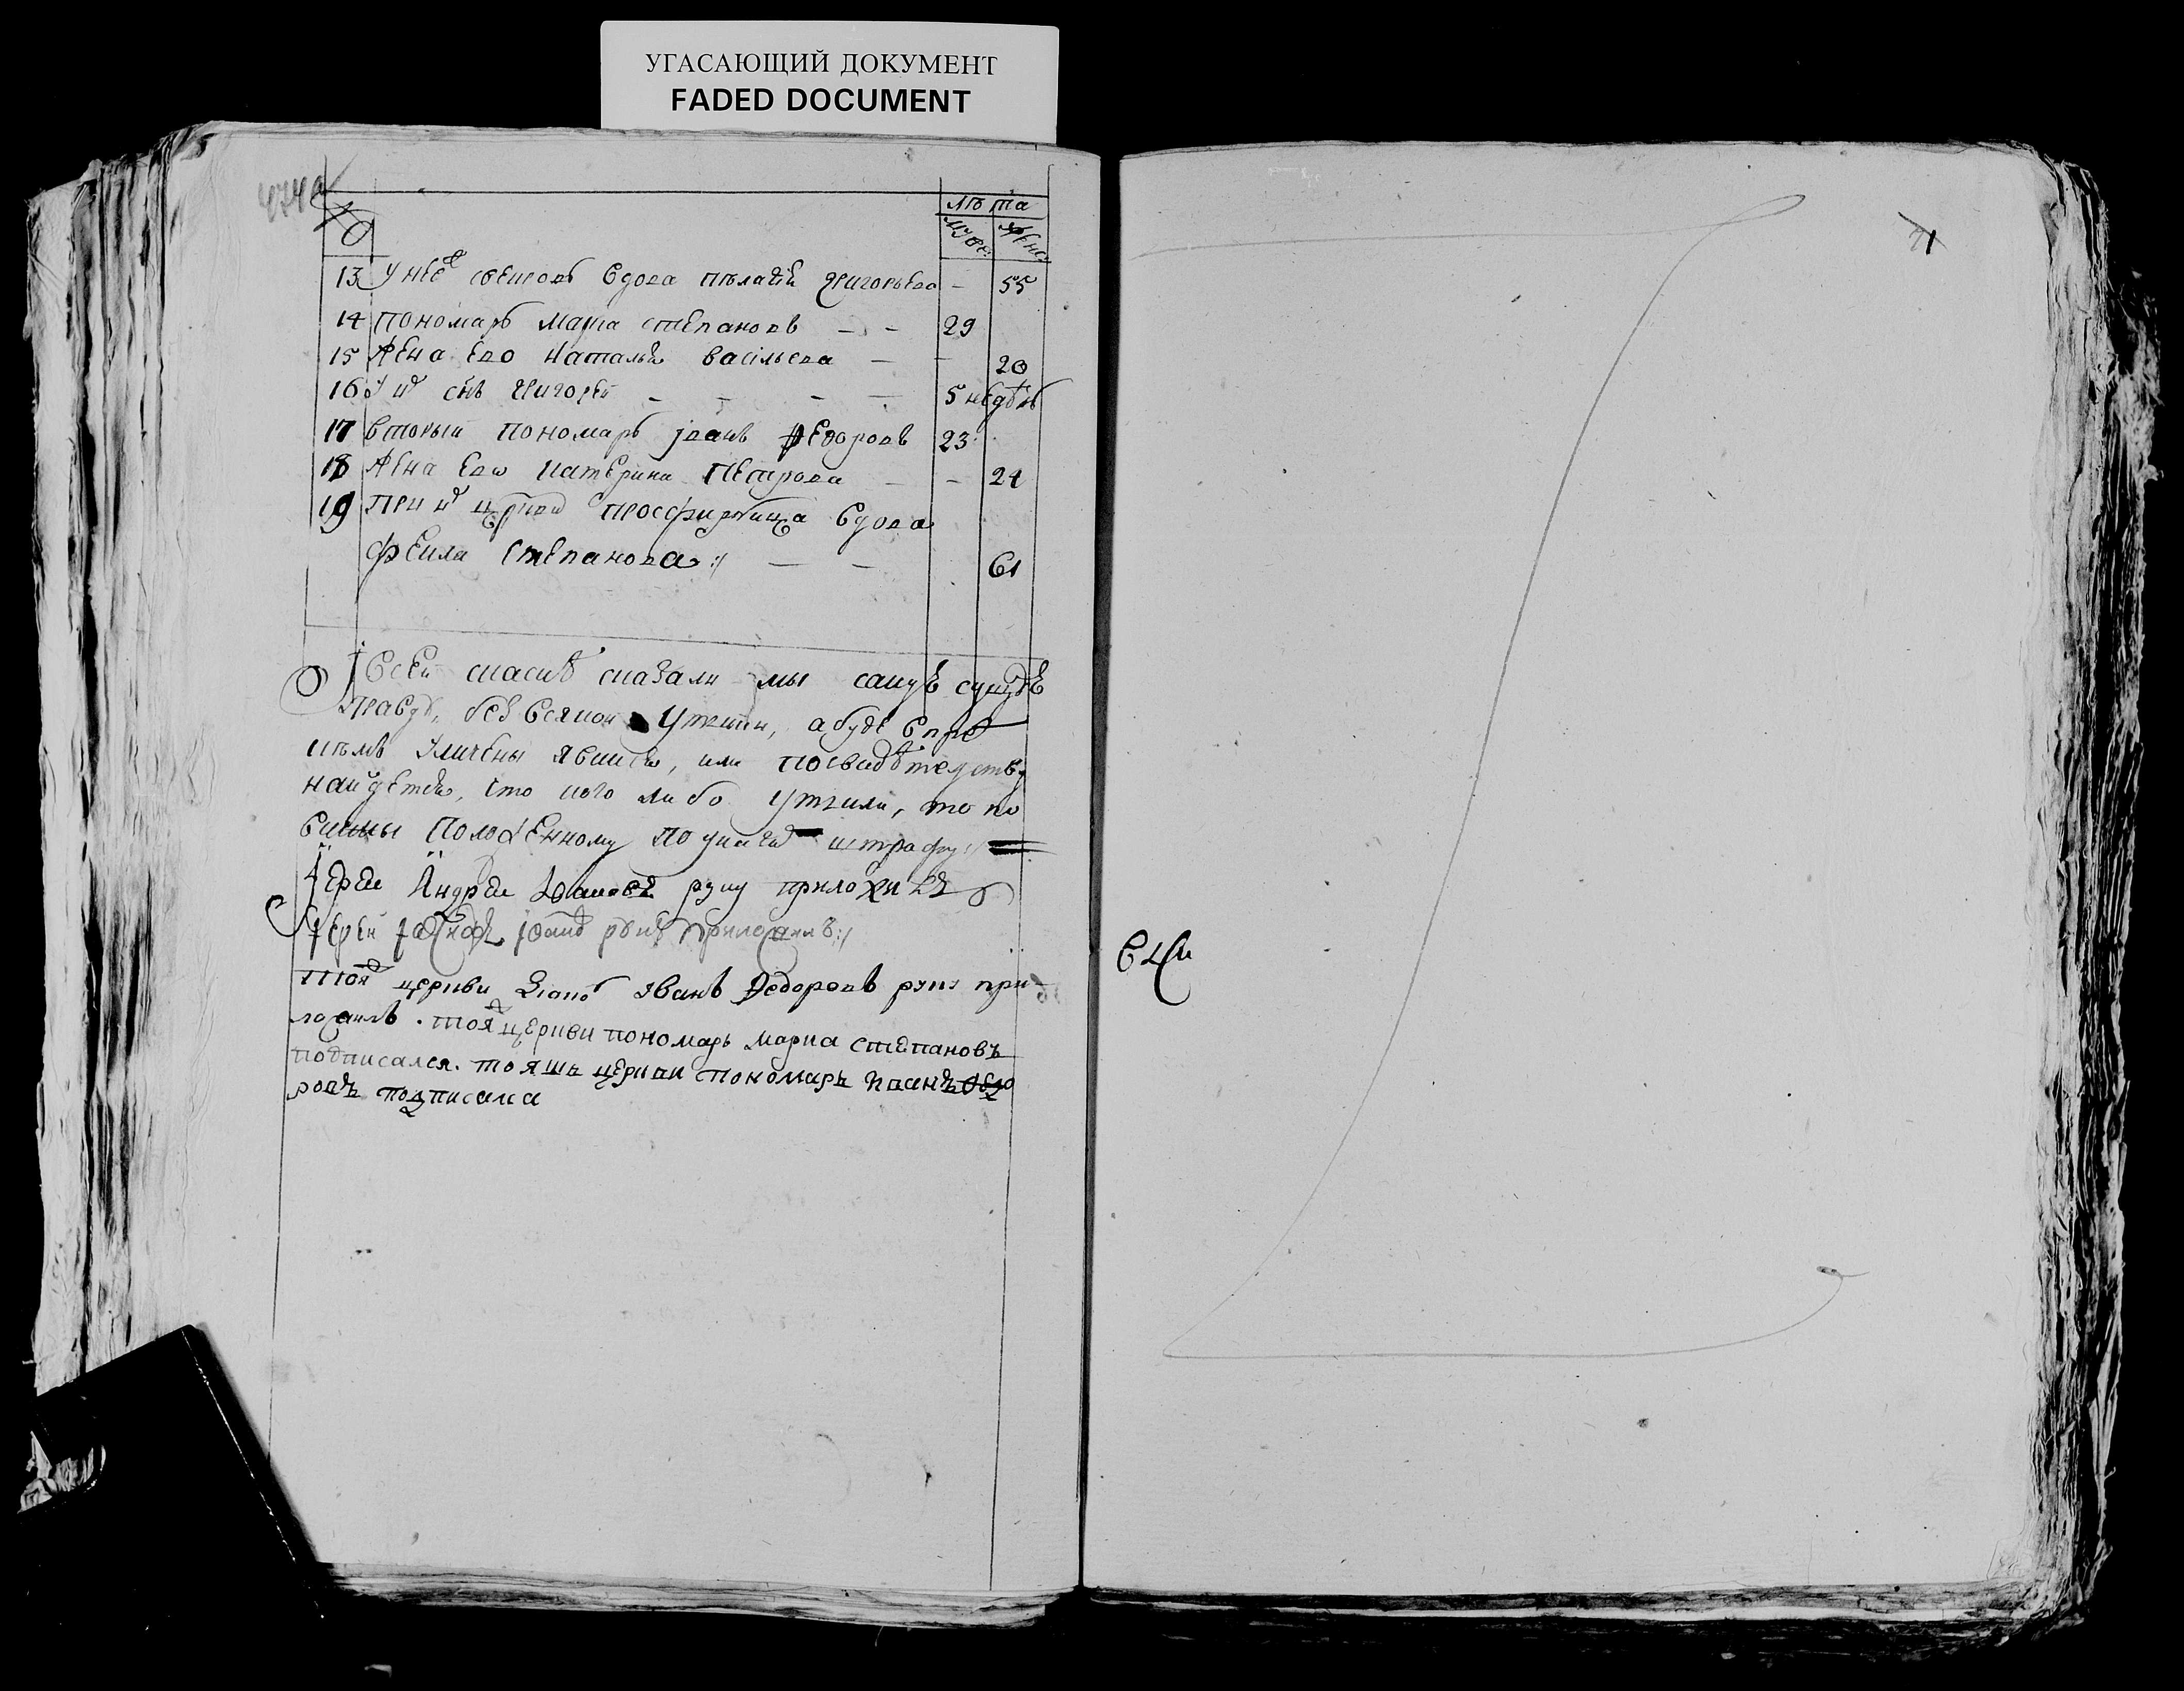 УГАСАЮЩИЙ ДОКУМЕНТ
FADED DOCUMENT
474об
70
лѣта
муж: женс:
13 У неѣ свекровь вдова пелагѣя григорьева - 55
14 пономарь марка степановъ - - 29
15 жена ево наталья васильева - - 20
16 У ихъ снъ григорей - - - - 5 недѣль
17 вторый пономарь іванъ федоровъ 23
18 жена ево катерина петрова - - 24
19 при той црькви просфирница вдова
фекла степанова :/ - - 61
О всей скаскѣ сказали мы самую сущую
правду, безъ всякой утайки, а буде в пре
кѣмъ уличены явимся, или по свидѣтелству
найдется, что кого либо утаили, то по
винны положенному по указу штрафу :/
Іерей Андрей Іванов руку приложилъ
Іерей іваннъ руку приложилъ :/
тояж церкви диакъ іванъ федоровъ руку при
ложилъ . тояж церкви пономарь марка степановъ
подписался. тояшъ церкви пономаръ иванъ федо
ровъ подписался
71